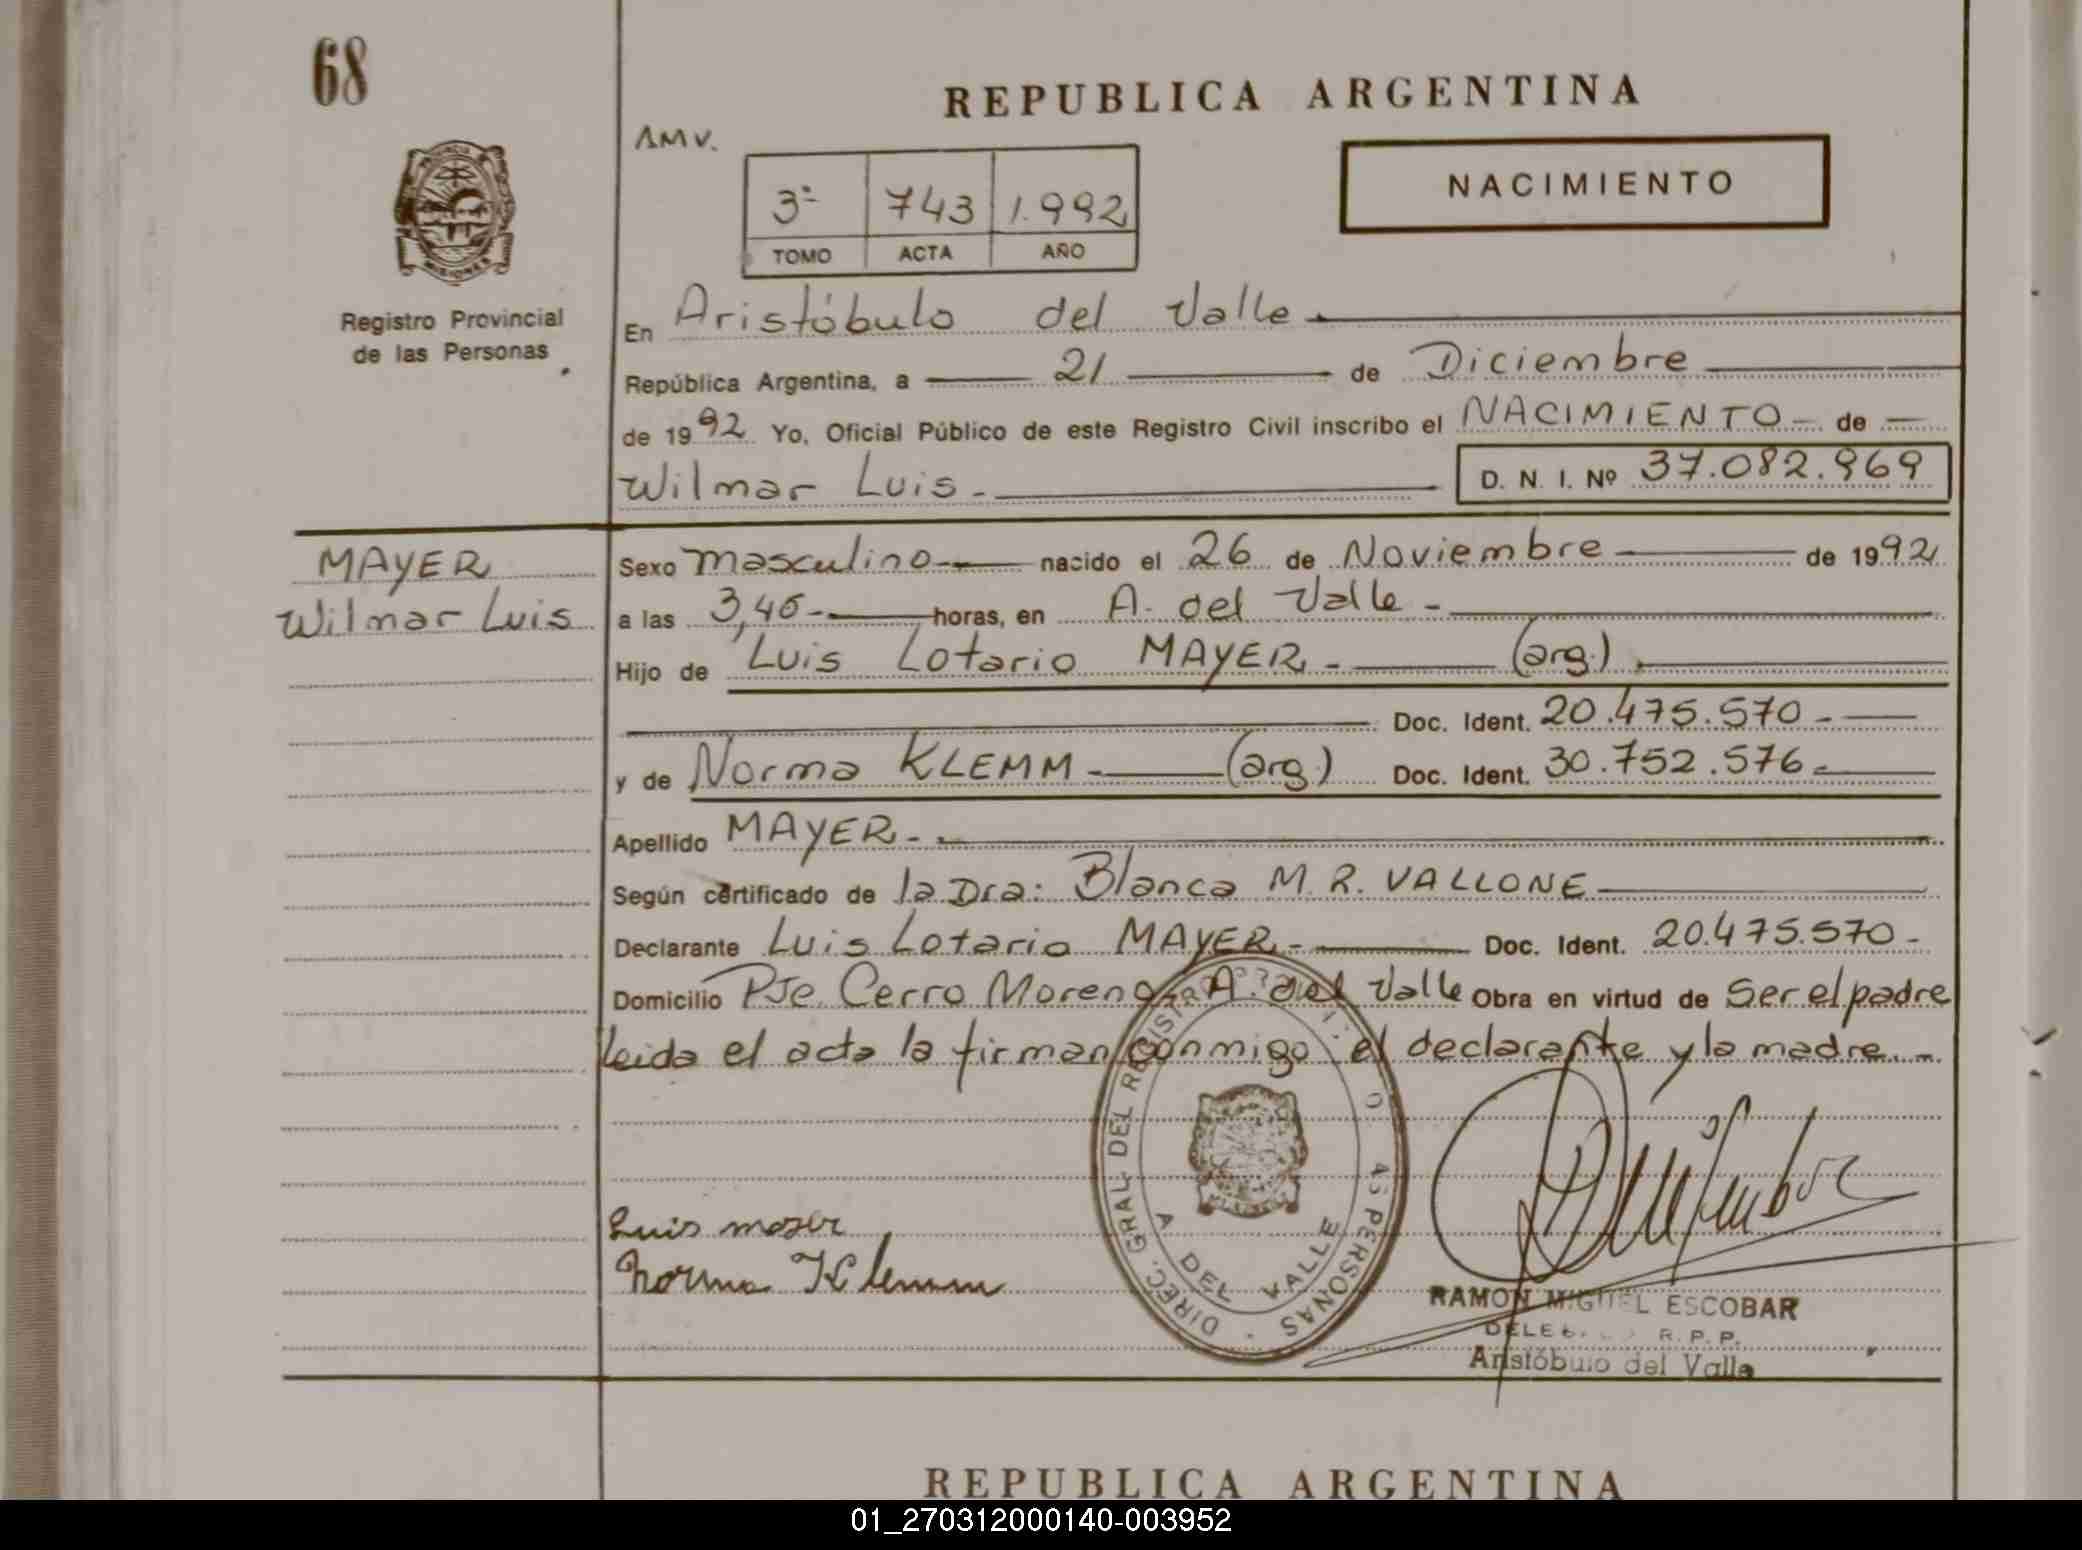 68
REPUBLICA ARGENTINA
AMV.
NACIMIENTO
3º 743 1.992
TOMO ACTA AÑO
PROVINCIA DE
MISIONES
Registro Provincial
de las Personas
En Aristóbulo del Valle
República Argentina, a 21 de Diciembre
de 1992 Yo, Oficial Público de este Registro Civil inscribo el NACIMIENTO - de
Wilmar Luis. - D. N. I. Nº 37.082.969
MAYER
Wilmar Luis
Sexo masculino - nacido el 26 de Noviembre de 1992
a las 3,45 - horas, en A. del Valle -
Hijo de Luis Lotario MAYER - (arg.)
Doc. Ident. 20.475.570 -
y de Norma KLEMM - (arg.) Doc. Ident. 30.752.576 -
Apellido MAYER -
Según certificado de la Dra: Blanca M. R. VALLONE
Declarante Luis Lotario MAYER - Doc. Ident. 20.475.570 -
Domicilio Pje. Cerro Moreno - A. del Valle Obra en virtud de Ser el padre
leida el acta la firman conmigo el declarante y la madre. -
DIREC. GRAL. DEL REGISTRO PERSONAS
A DEL VALLE
Luis mayer
Norma Klemm
RAMON MIGUEL ESCOBAR
R. P. P.
Aristóbulo del Valle
REPUBLICA ARGENTINA
01_270312000140-003952